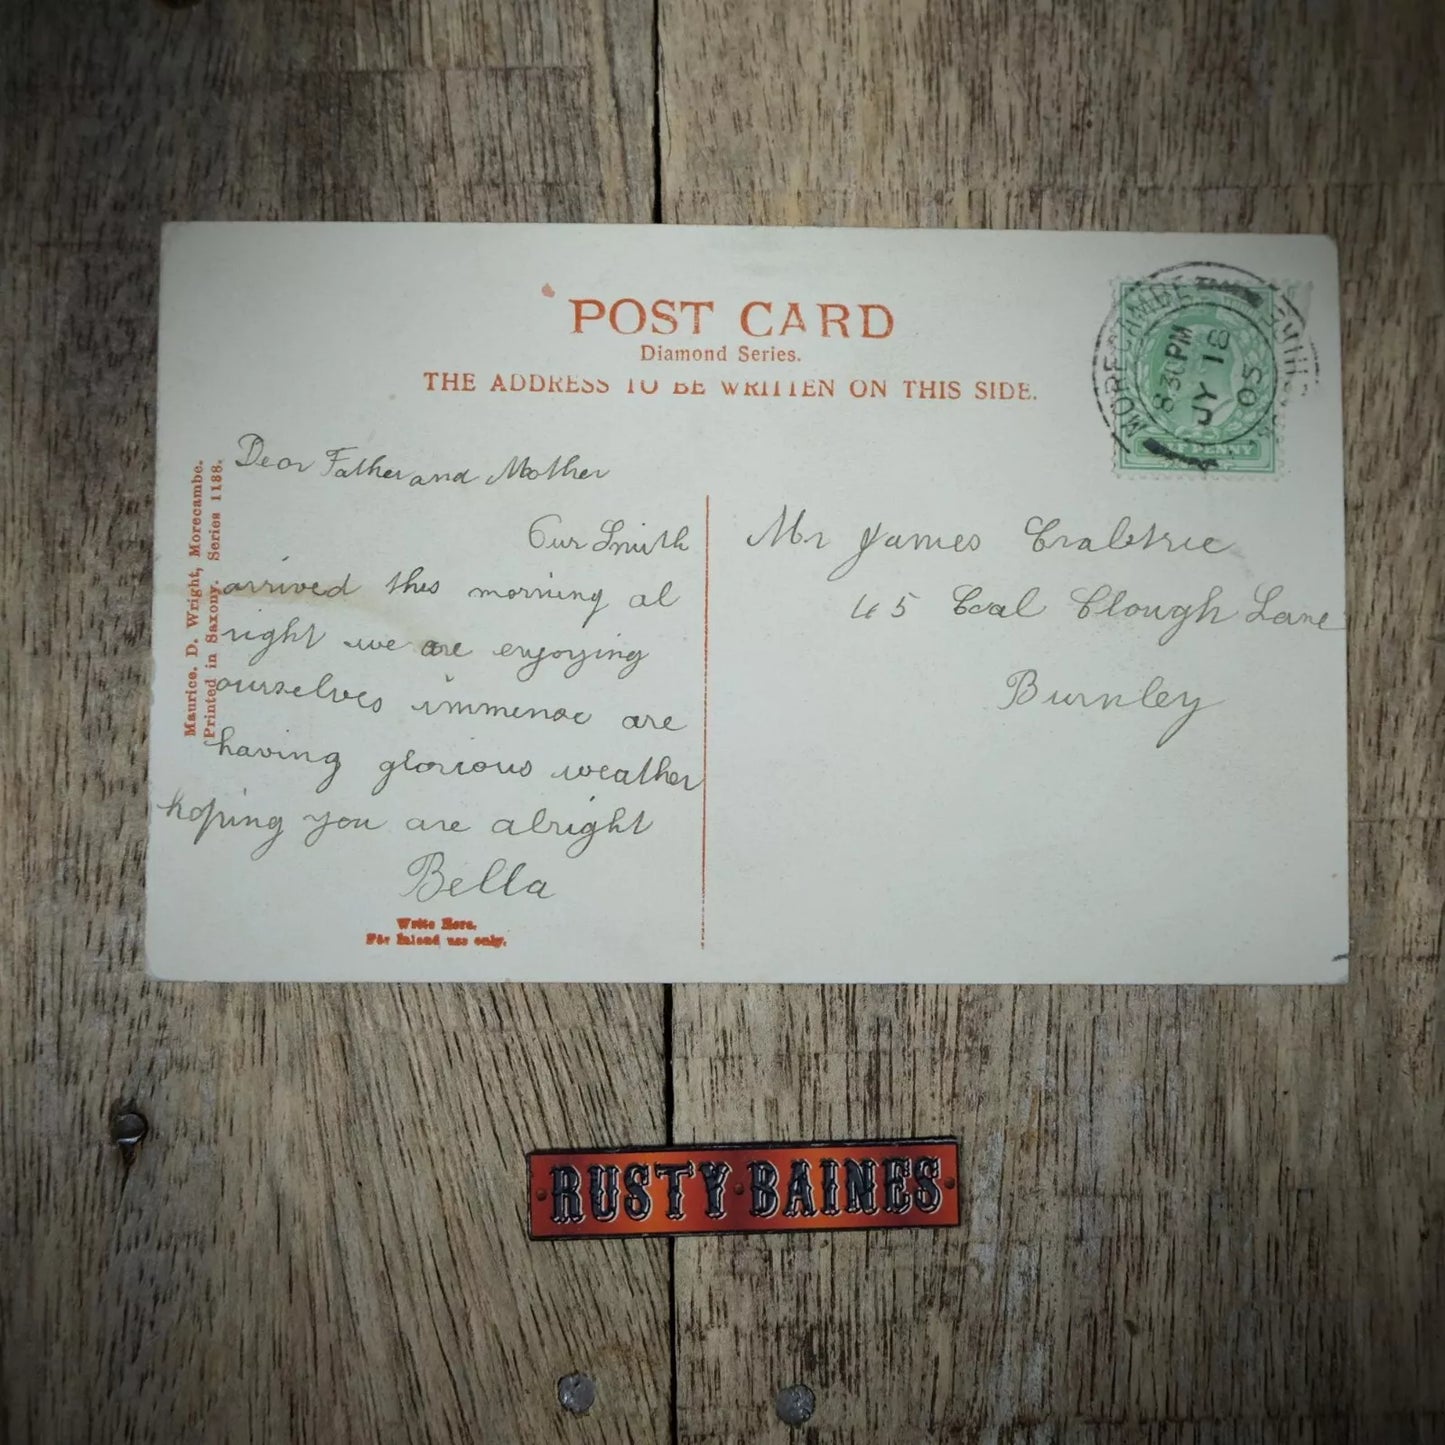 POST CARD
Diamond Series.
THE ADDRESS TO BE WRITTEN ON THIS SIDE.
MORECAMBE
8 30 PM
JY 18
05
HALF PENNY
Maurice. D. Wright, Morecambe.
Printed in Saxony. Series 1188.
Dear Father and Mother
Our Smith
arrived this morning al
right we are enjoying
ourselves immense are
having glorious weather
hoping you are alright
Bella
Write Here.
For Inland use only.
Mr James Crabtree
45 Coal Clough Lane
Burnley
RUSTY BAINES